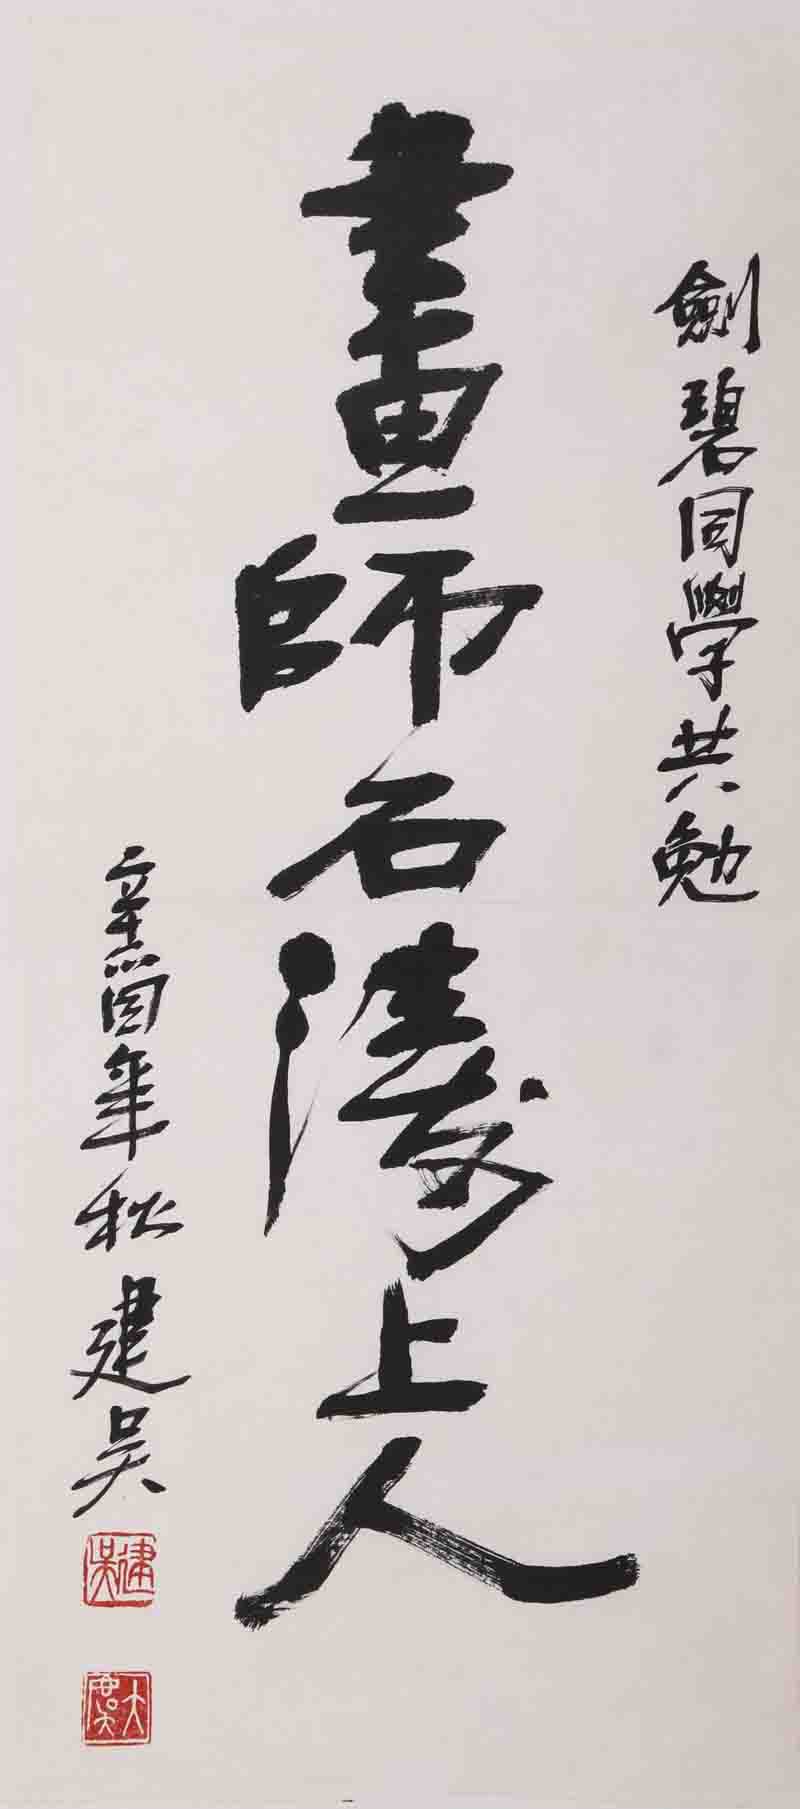 劍碧同學共勉
畫師石濤上人
辛酉年秋建吴
建吴